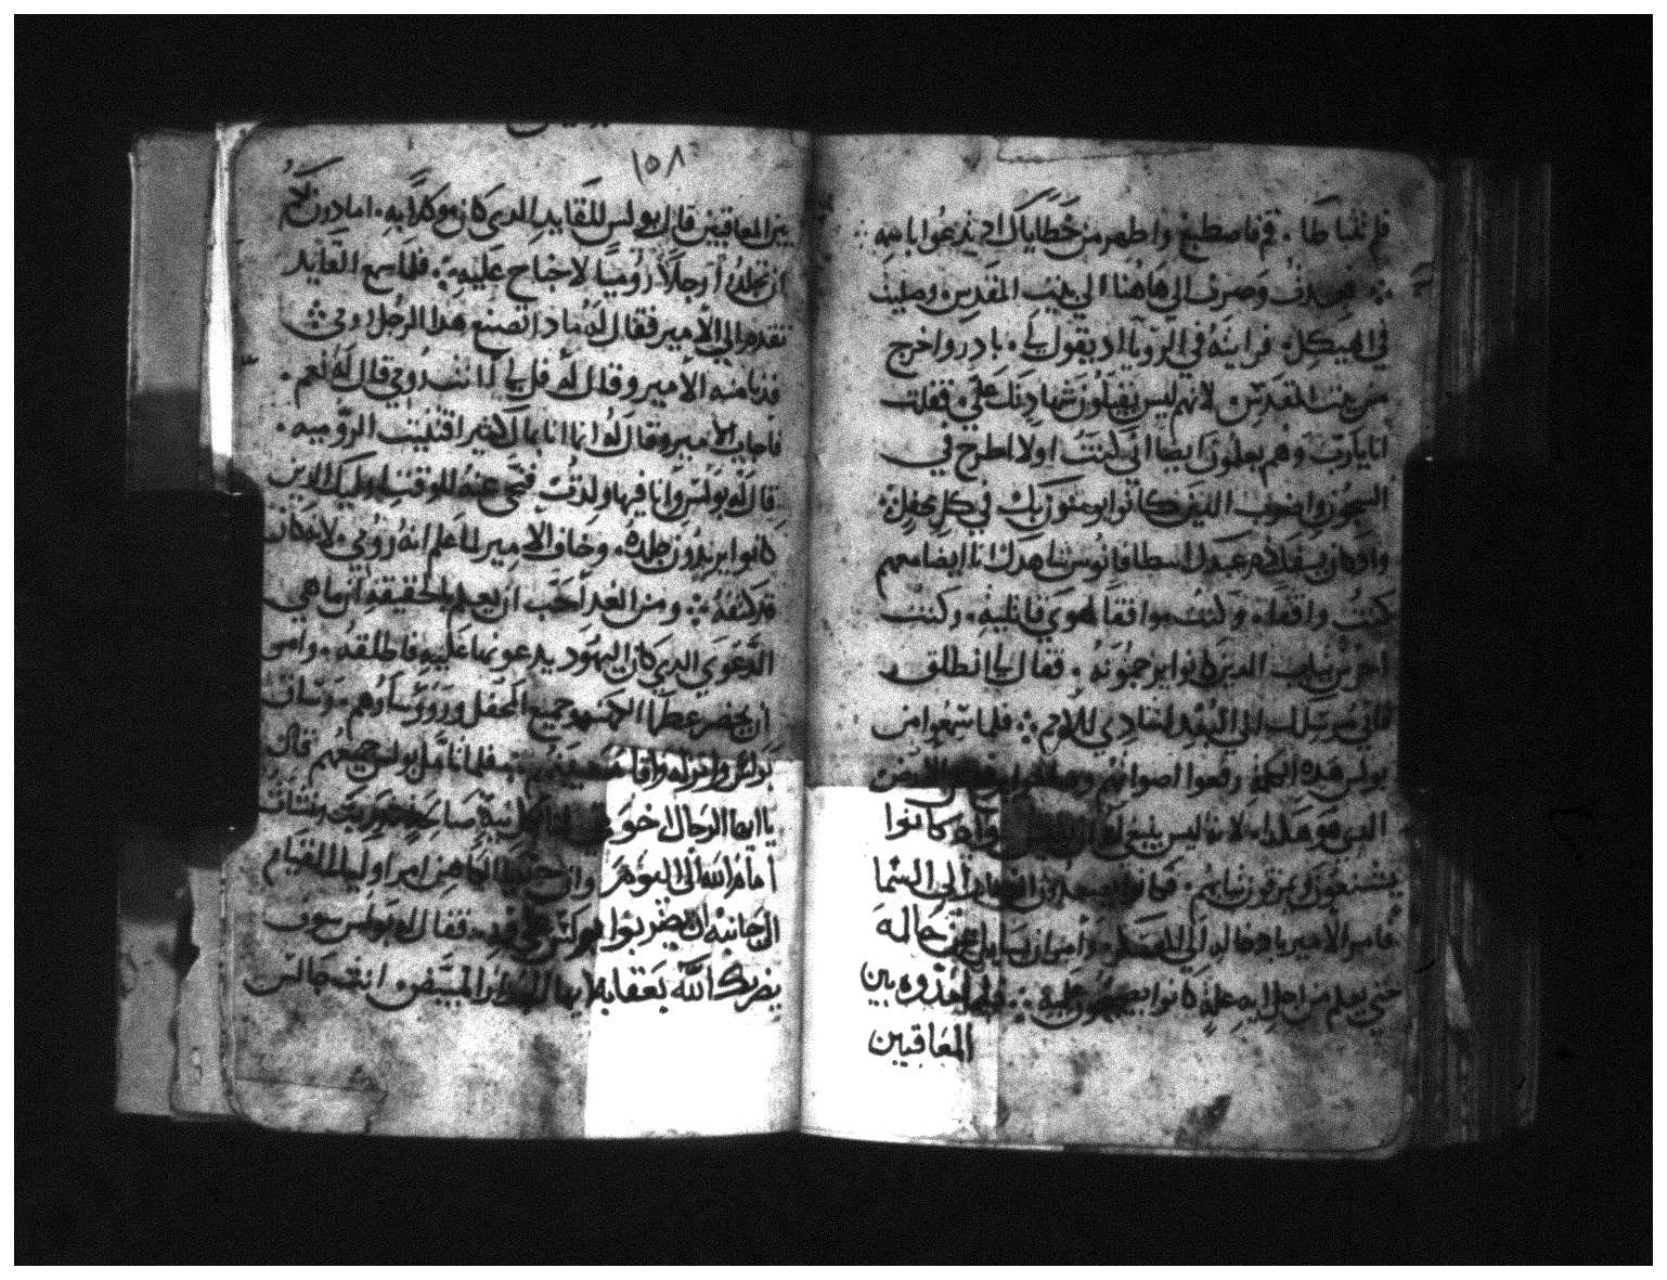 فلم تتباطا. قم فاصطبغ واطهر من خطاياك اذ تدعوا باسمه
وصرت الى هاهنا الى بيت المقدس. وصليت
في الهيكل. فرايته في الرويا اذ يقول لي. بادر واخرج
من بيت المقدس. لانهم ليس يقبلون شهادتك علي. فقلت
انا يارب وهم يعلمون ايضا اني كنت اولا اطرح في
السجون واضرب الذين كانوا يومنون بك في كل محفل
واذ كان يسفك دم عبدك اسطافانوس شاهدك انا ايضا معهم
كنت واقفا. وكنت موافقا لهوي قاتليه. وكنت
احرس ثياب الذين كانوا يرجمونه. فقال لي انطلق
فاني مرسلك الي البعد لتنادي للامم فلما سمعوا من
بولس هذه الكلمة رفعوا اصواتهم من الارض
الذي هو هكذا. لانه ليس ينبغي كانوا
ثيابهم. الى السما
فامر الامير بادخاله الي حاله
حتي يعلم من اجل ايه علة كانوا يصيحون عليه. فلما مدوه بين
المعاقبين
١٥٨
بين المعاقبين قال بولس للقايد الذي كان موكلا به. اماذون لكم
ان تجلدوا رجلا روميا لا جناح عليه. فلما سمع القايد
تقدم الي الامير فقال له ماذا تصنع هذا الرجل رومي
فدنا منه الامير وقال له قل لي انت رومي قال له نعم.
فاجاب الامير وقال له انا بمال كثير اقتنيت الروميه.
قال له بولس وانا فيها ولدت فتنحي عنه للوقت اوليك الذين
كانوا يريدون جلده. وخاف الامير لما علم انه رومي. لانه كان
قد كتفه ومن الغد احب ان يعلم بالحقيقه ان ما هي
الدعوي الذي كان اليهود يدعونها عليه فاطلقه. وامر
ان يحضر عظما الكهنه وجميع المحفل ورووساوهم. وساق
بولس وانزله واقامه فلما تامل بولس جميعهم قال
يا ايها الرجال اخوتي صالحه
امام الله الى اليوم وان حننيا الكاهن امر اوليك القيام
الى جانبه ان يضربوا بولس على فيه. فقال له بولس سوف
يضربك الله بعقابه ايها الجدار المبيض. انت جالس